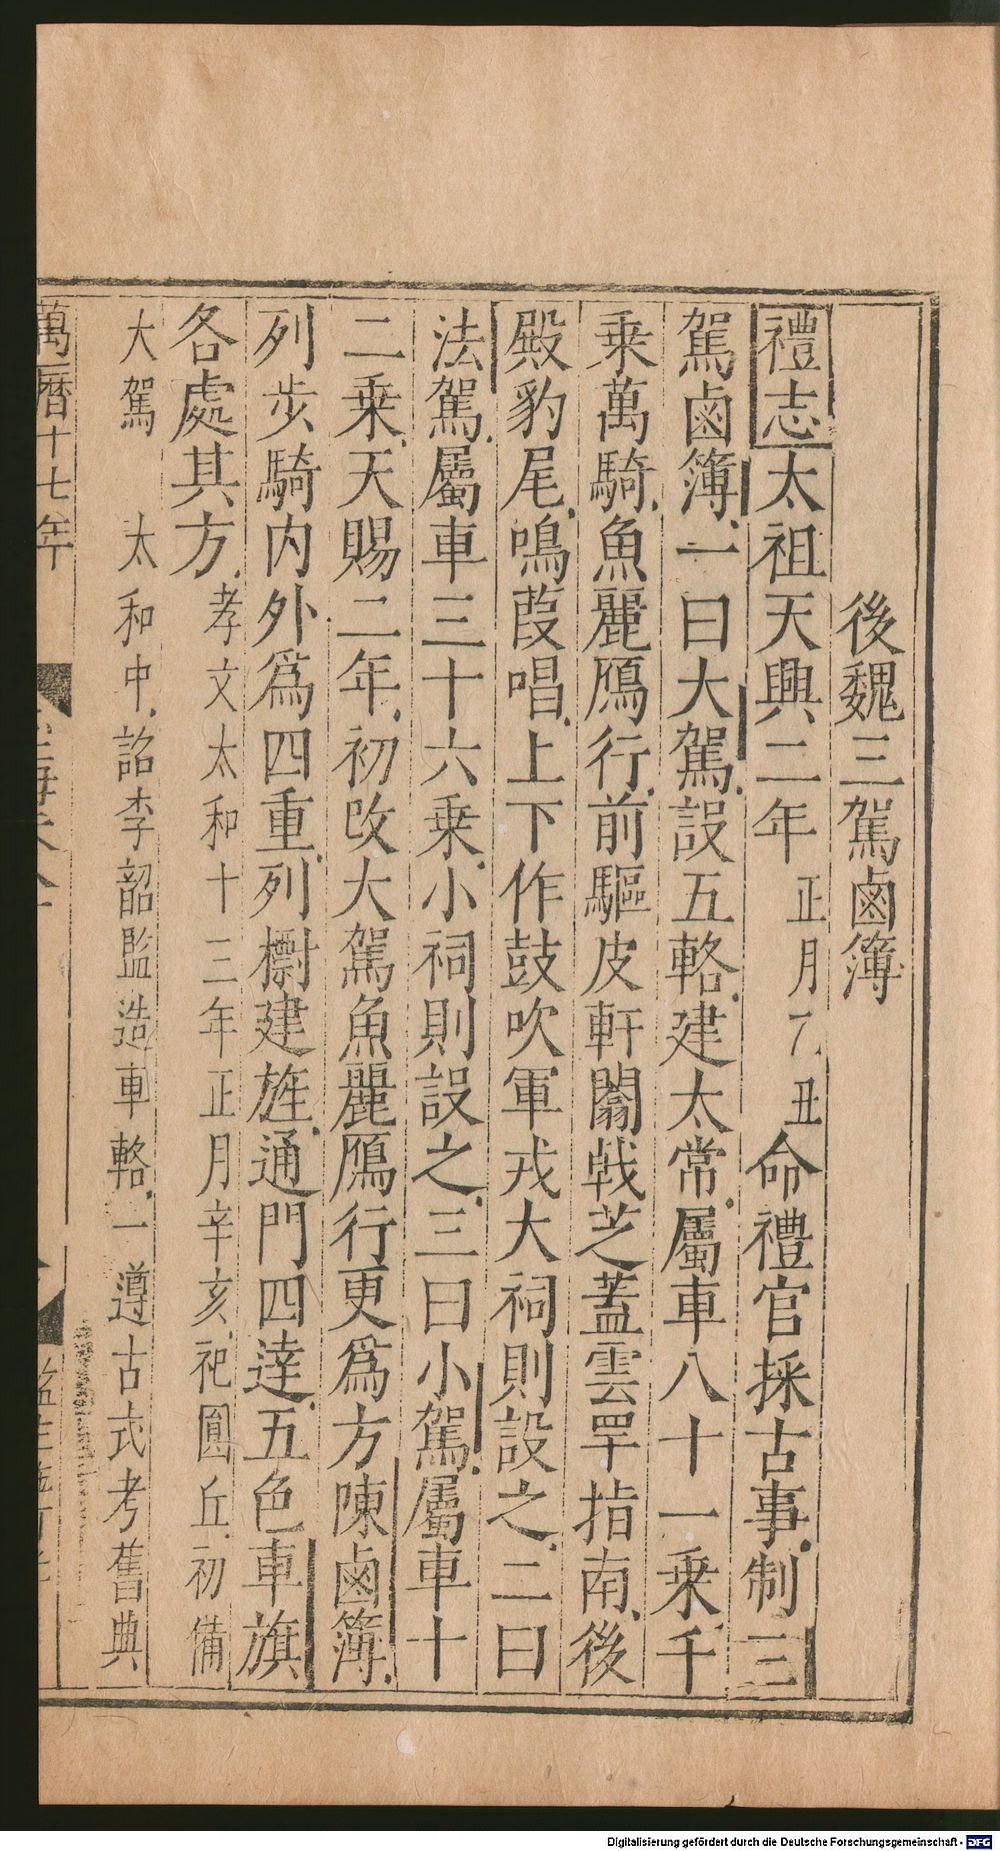 後魏三駕鹵簿
禮志太祖天興二年正月乃丑命禮官採古事制三
駕鹵簿一曰大駕設五輅建太常屬車八十一乗千
乗萬騎魚麗鴈行前驅皮軒闟戟芝蓋雲罕指南後
殿豹尾鳴葭唱上下作鼓吹軍戎大祠則設之二曰
法駕屬車三十六乗小祠則設之三曰小駕屬車十
二乗天賜二年初改大駕魚麗鴈行更爲方陳鹵簿
列步騎内外爲四重列㯡建旌通門四達五色車旗
各處其方孝文太和十三年正月辛亥祀圓丘初備
大駕 太和中詔李韶監造車輅一遵古式考舊典
萬曆十七年
Digitalisierung gefördert durch die Deutsche Forschungsgemeinschaft - DFG